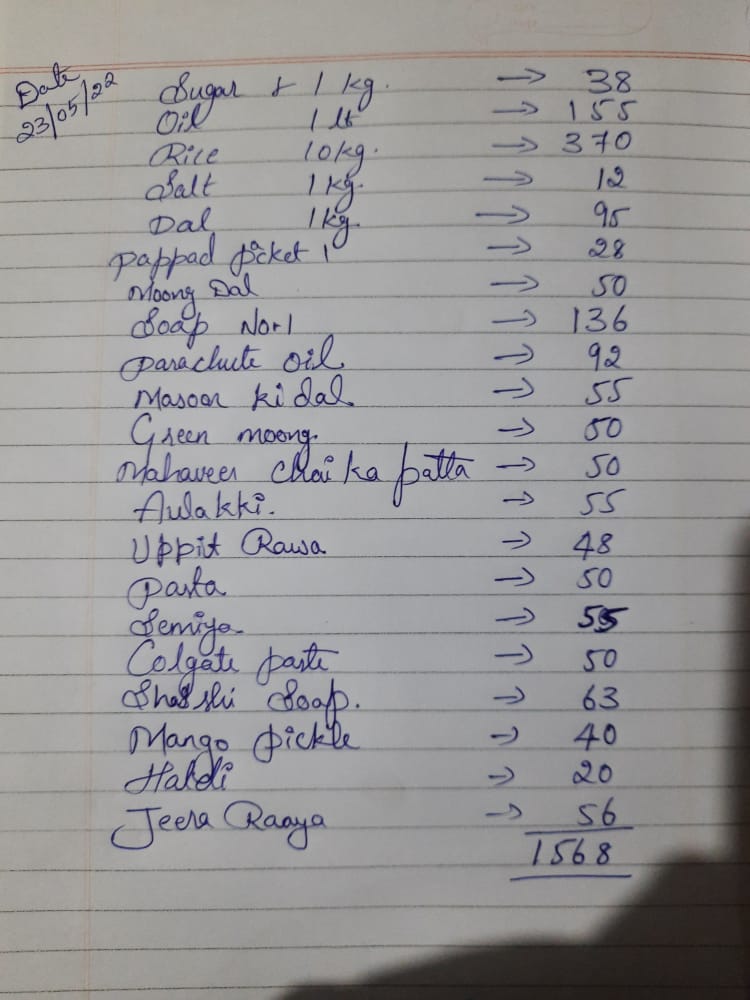 Date
23/05/22
Sugar 1 kg. → 38
Oil 1 lt → 155
Rice 10kg. → 370
Salt 1 kg. → 12
Dal 1 kg. → 95
pappad picket 1 → 28
Moong Dal → 50
Soap No-1 → 136
parachute oil → 92
Masoor ki dal → 55
Green moong. → 50
Mahaveer Chai ka patta → 50
Aulakki. → 55
Uppit Rawa → 48
Pasta → 50
Semiya → 55
Colgate paste → 50
Soap. → 63
Mango pickle → 40
Haldi → 20
Jeera Raaya → 56
1568